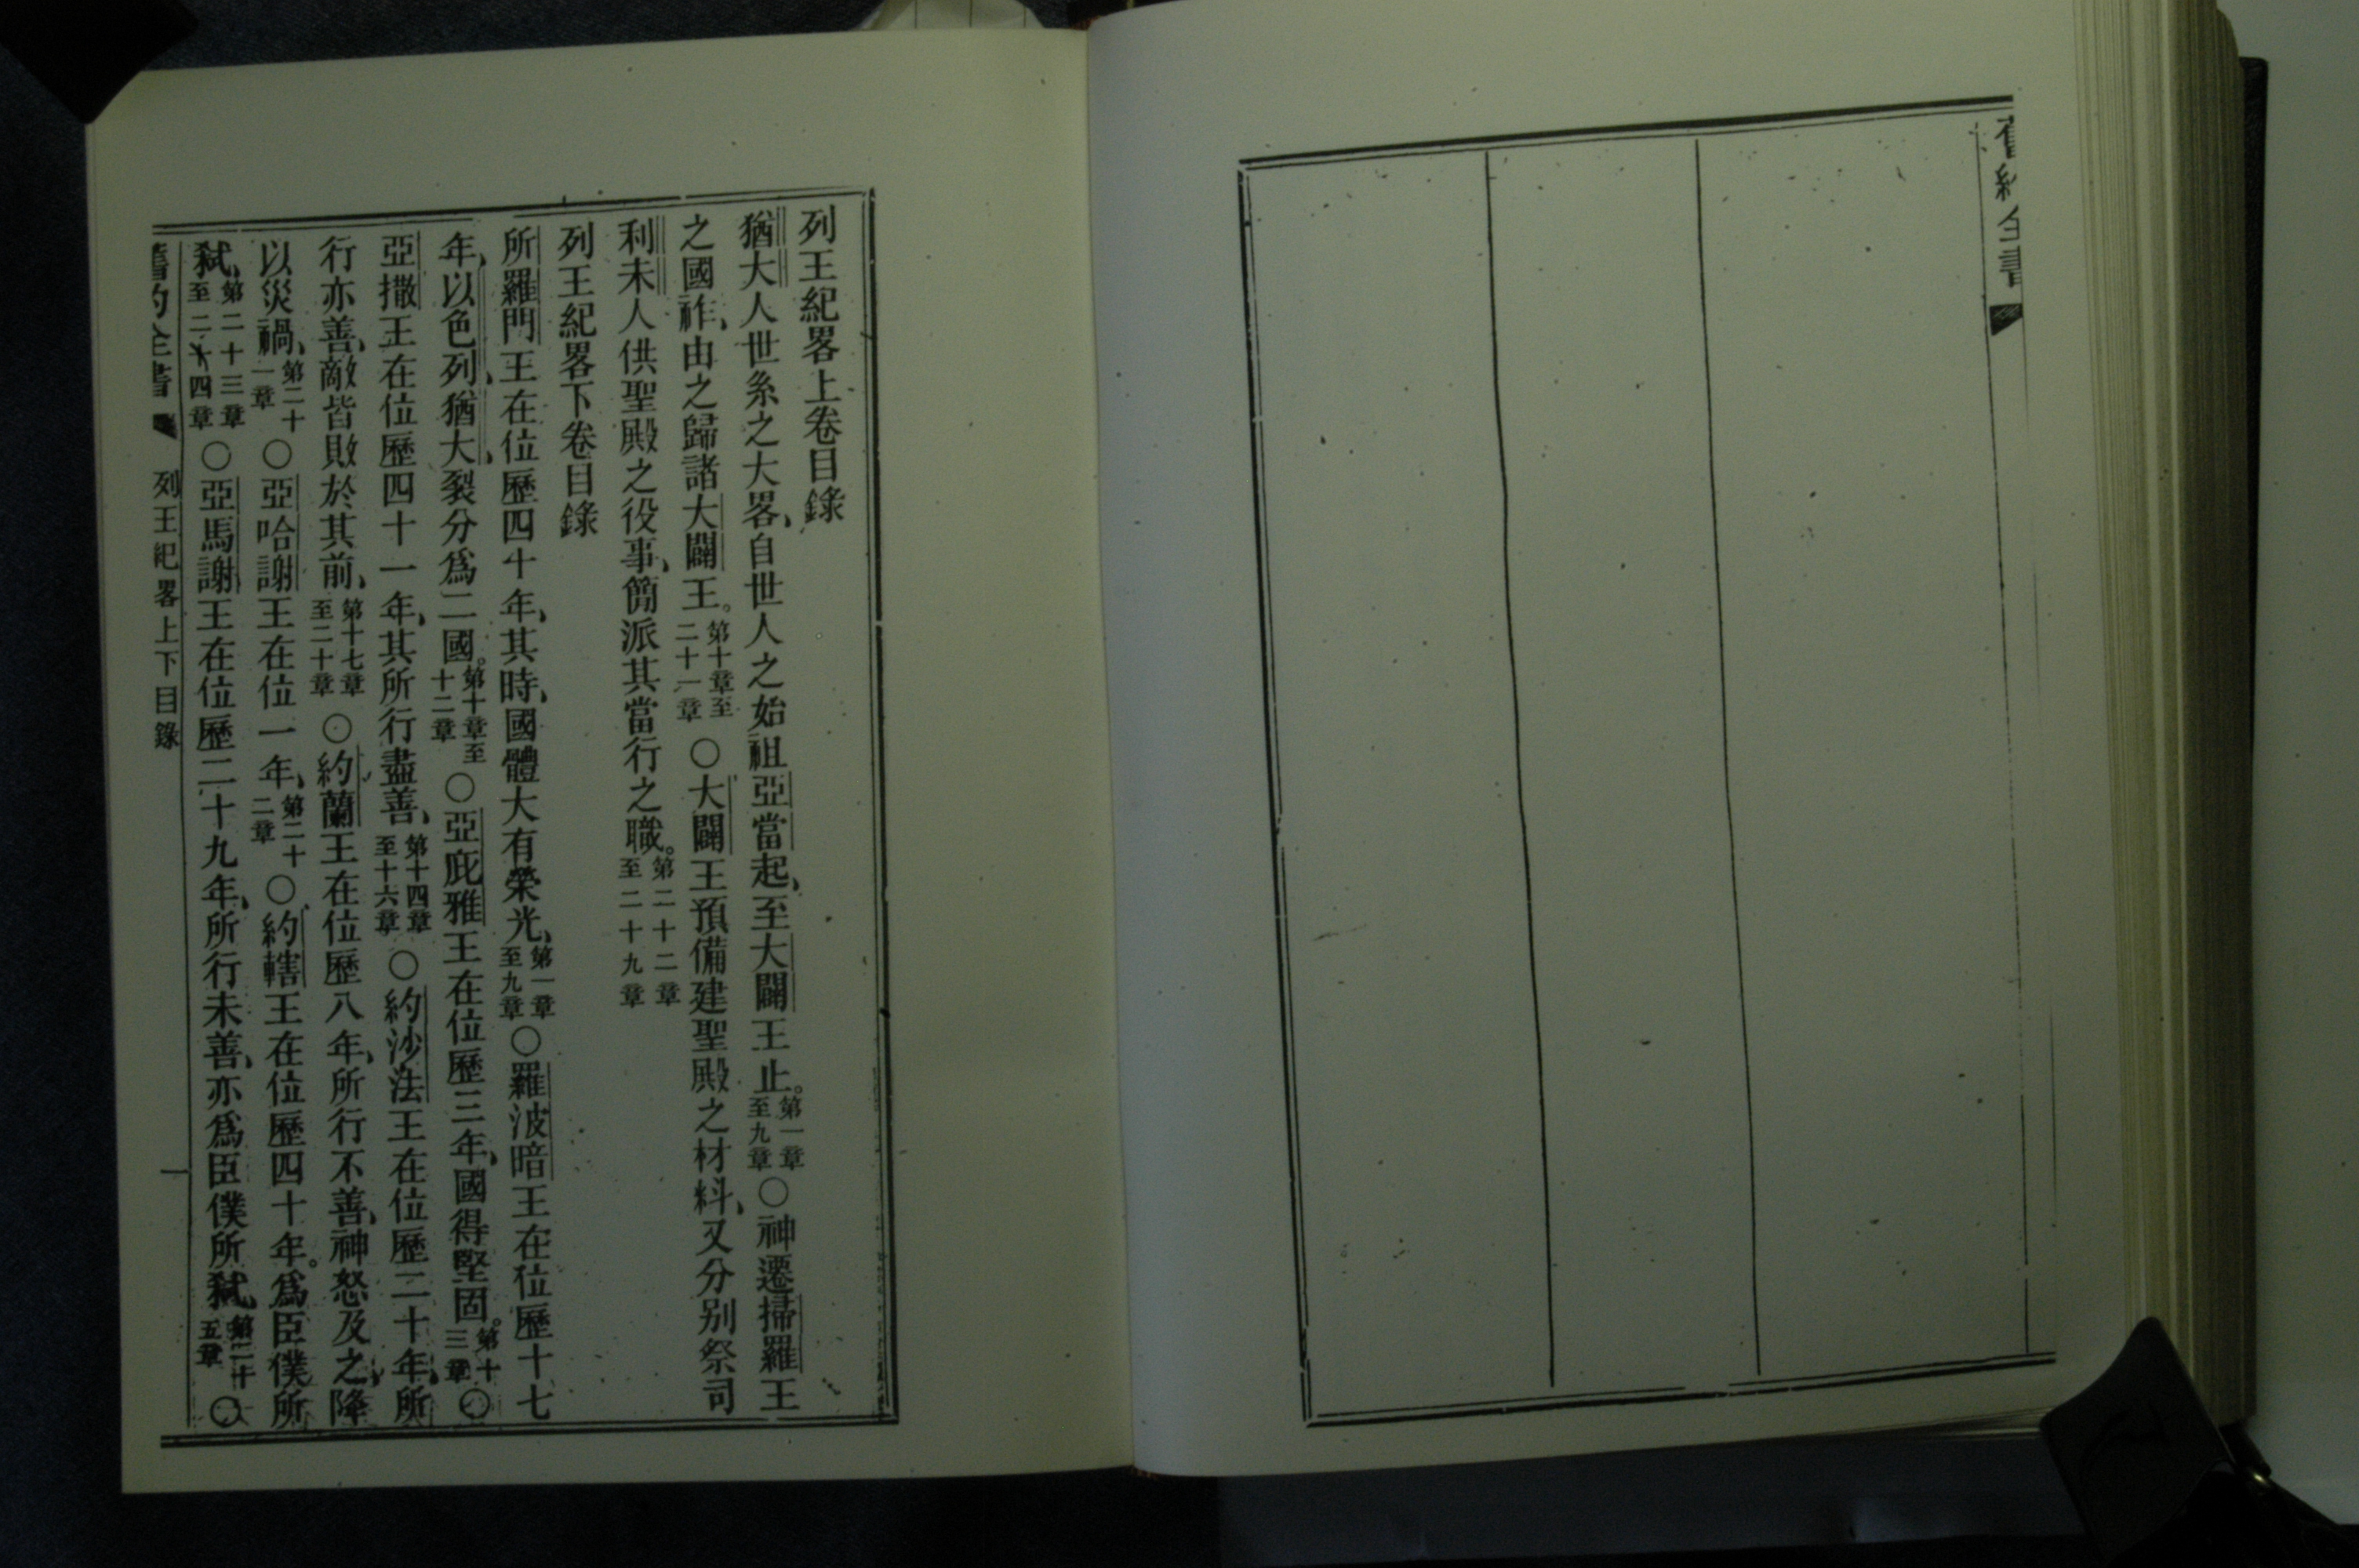 舊約全書
列王紀畧上卷目錄
猶大人世系之大畧、自世人之始祖亞當起、至大闢王止。第一章至九章○神遷掃羅王
之國祚、由之歸諸大闢王。第十章至二十一章○大闢王預備建聖殿之材料、又分别祭司
利未人供聖殿之役事、簡派其當行之職。第二十二章至二十九章
列王紀畧下卷目錄
所羅門王在位歷四十年、其時、國體大有榮光、第一章至九章○羅波暗王在位歷十七
年、以色列、猶大、裂分爲二國。第十章至十二章○亞庇雅王在位歷三年、國得堅固。第十三章○
亞撒王在位歷四十一年、其所行盡善、第十四章至十六章○約沙法王在位歷二十年、所
行亦善、敵皆敗於其前、第十七章至二十章○約蘭王在位歷八年、所行不善、神怒及之、降
以災禍、第二十一章○亞哈謝王在位一年、第二十二章○約轄王在位歷四十年。爲臣僕所
弒、第二十三章至二十四章○亞馬謝王在位歷二十九年、所行未善、亦爲臣僕所弒、第二十五章○
舊約全書 列王紀畧上下目錄 一